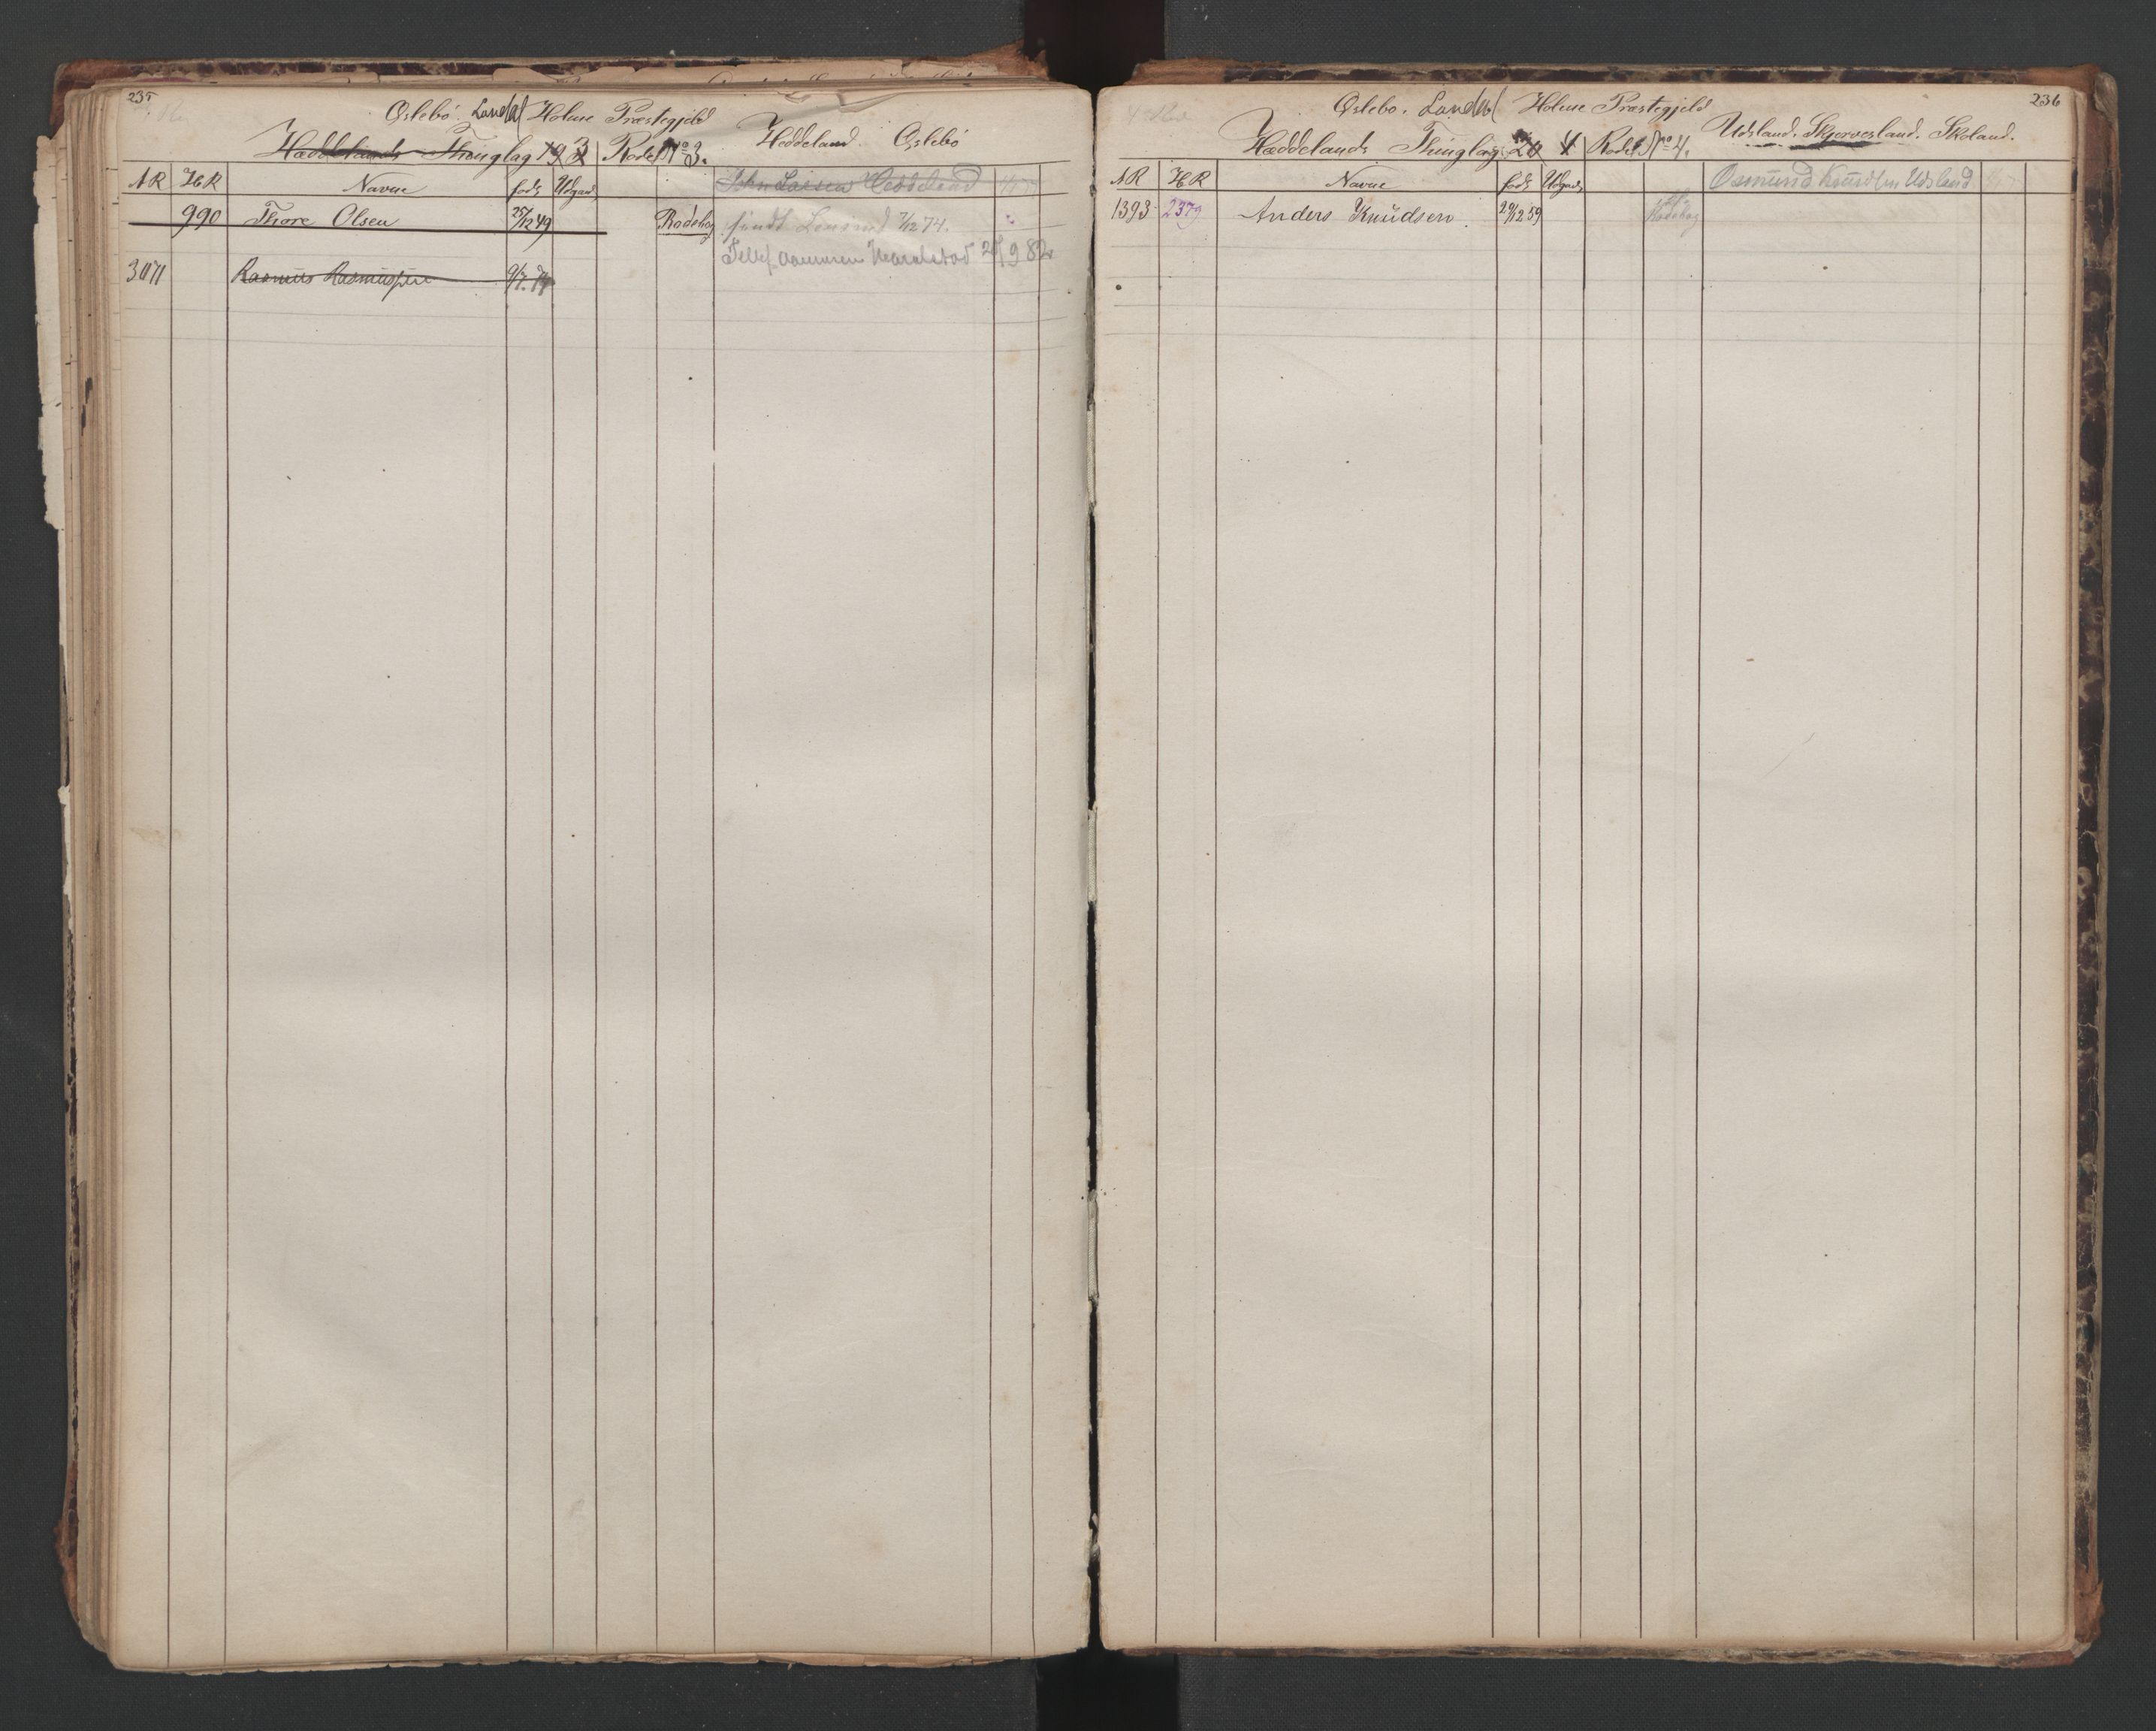 235
Øslebö. Landal Holme Præstegjeld
Heddelands Thinglag 19 3 Rode No 3. Heddeland. Øslebö
AR HR Navne föds Udgaar John Larsen Heddeland
990 Thore Olsen 25/12 49 Rodebog sendt Lensmd 7/12 74.
Tellef Aamunsen 25/9 82
3071 Rasmus Rasmussen 9/7. 74
236
4 Rd
Øslebo. Landal Holme Præstegjeld
Heddelands Thinglag. 20 4 Rode No 4. Udsland. Skjervesland. Skoland.
AR HR Navne föds Udgaar Aasmund Knudsen Udsland
1393 2379 Anders Knudsen. 29/12 59 Rodebog